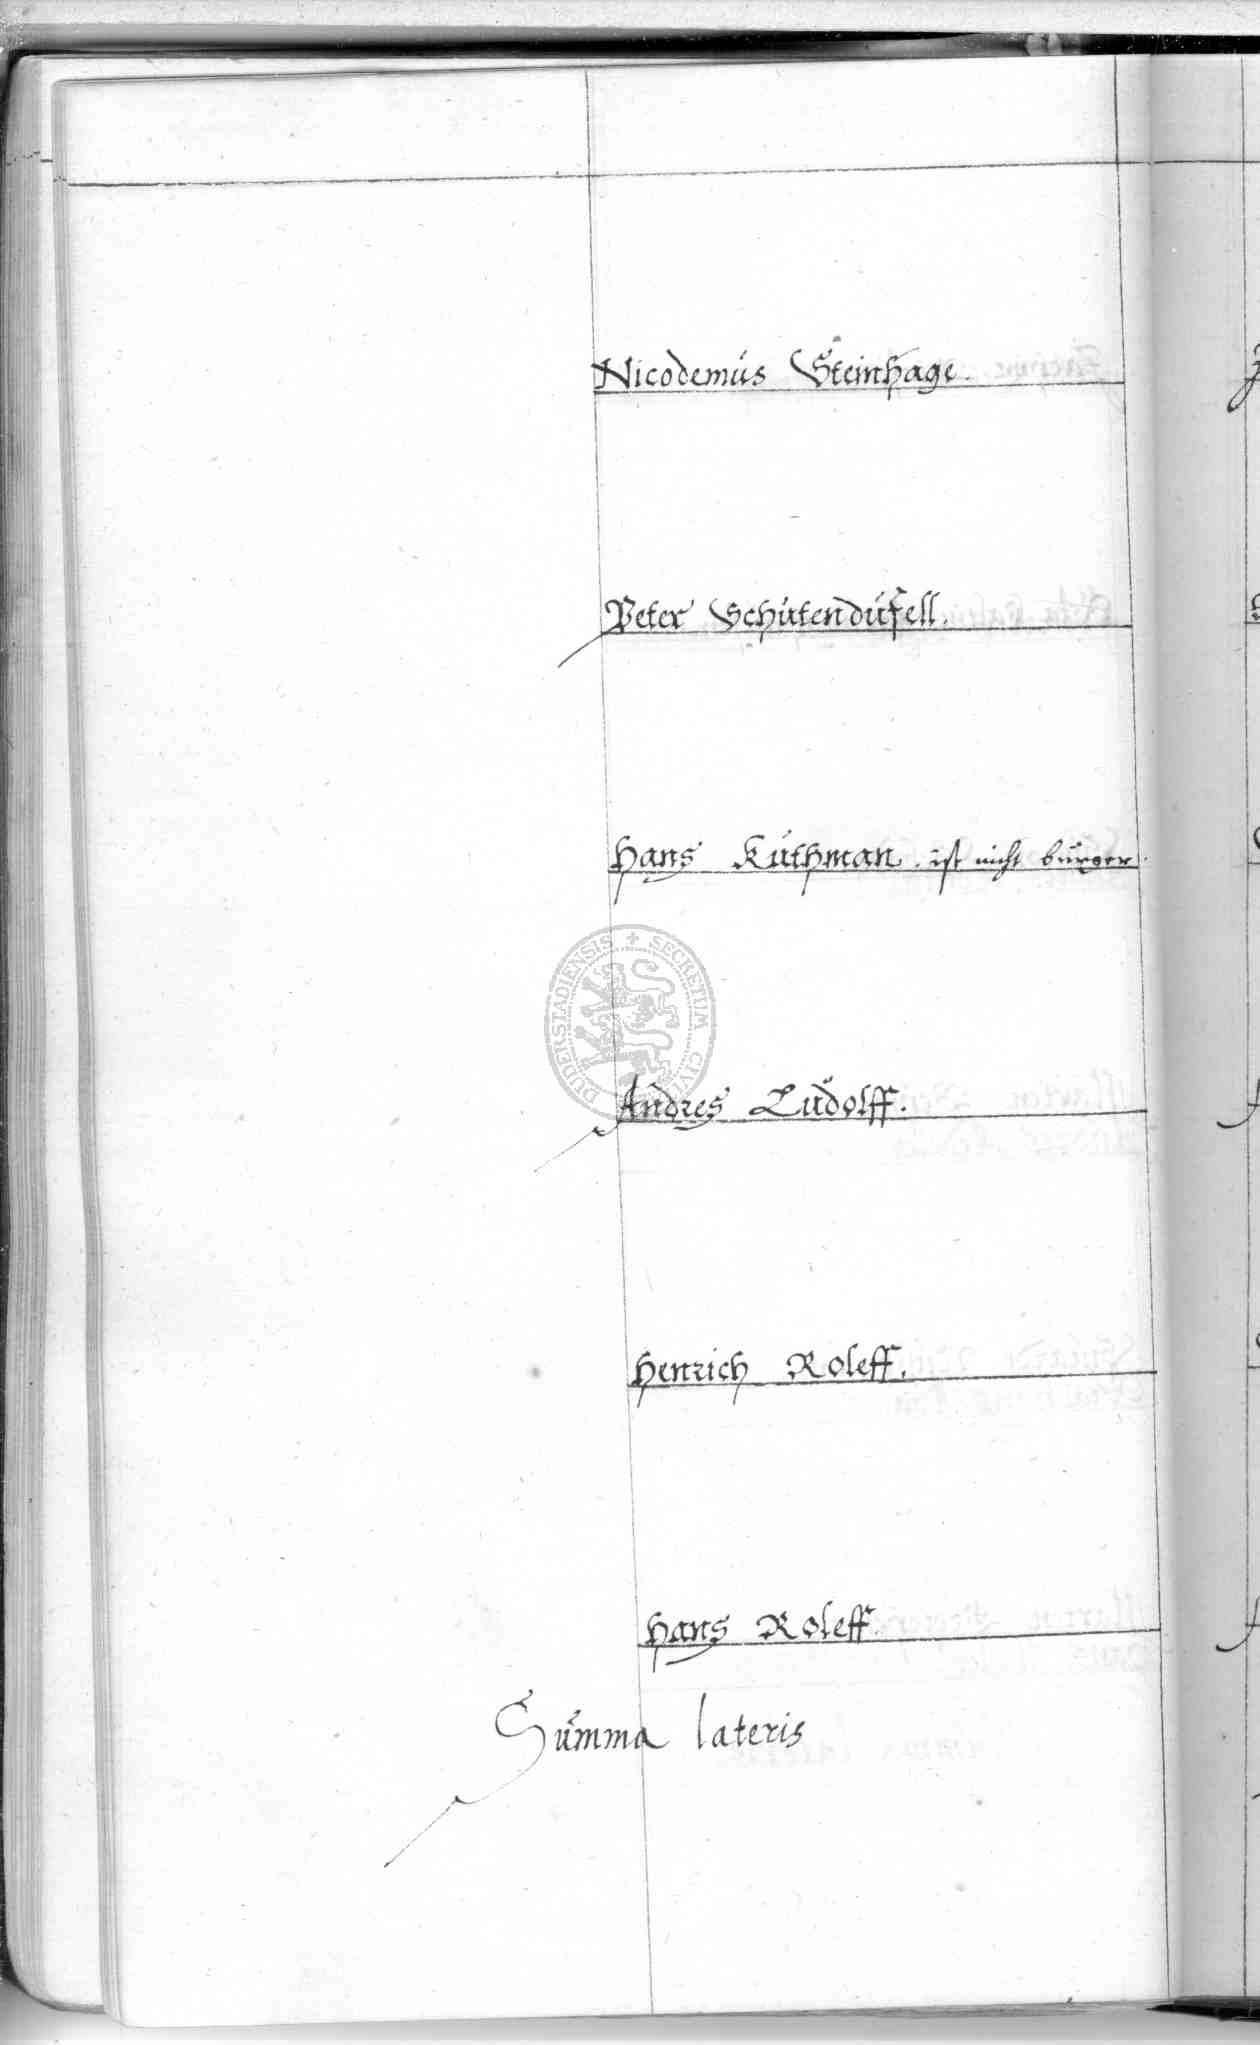 Nicodemus Steinhage.
Peter Schutendufell.
Hans Kuthman. ist nicht burger.
DUDERSTADIENSIS + SECRETUM CIVI
Andres Ludolff.
Henrich Roleff.
Hans Roleff.
Summa lateris